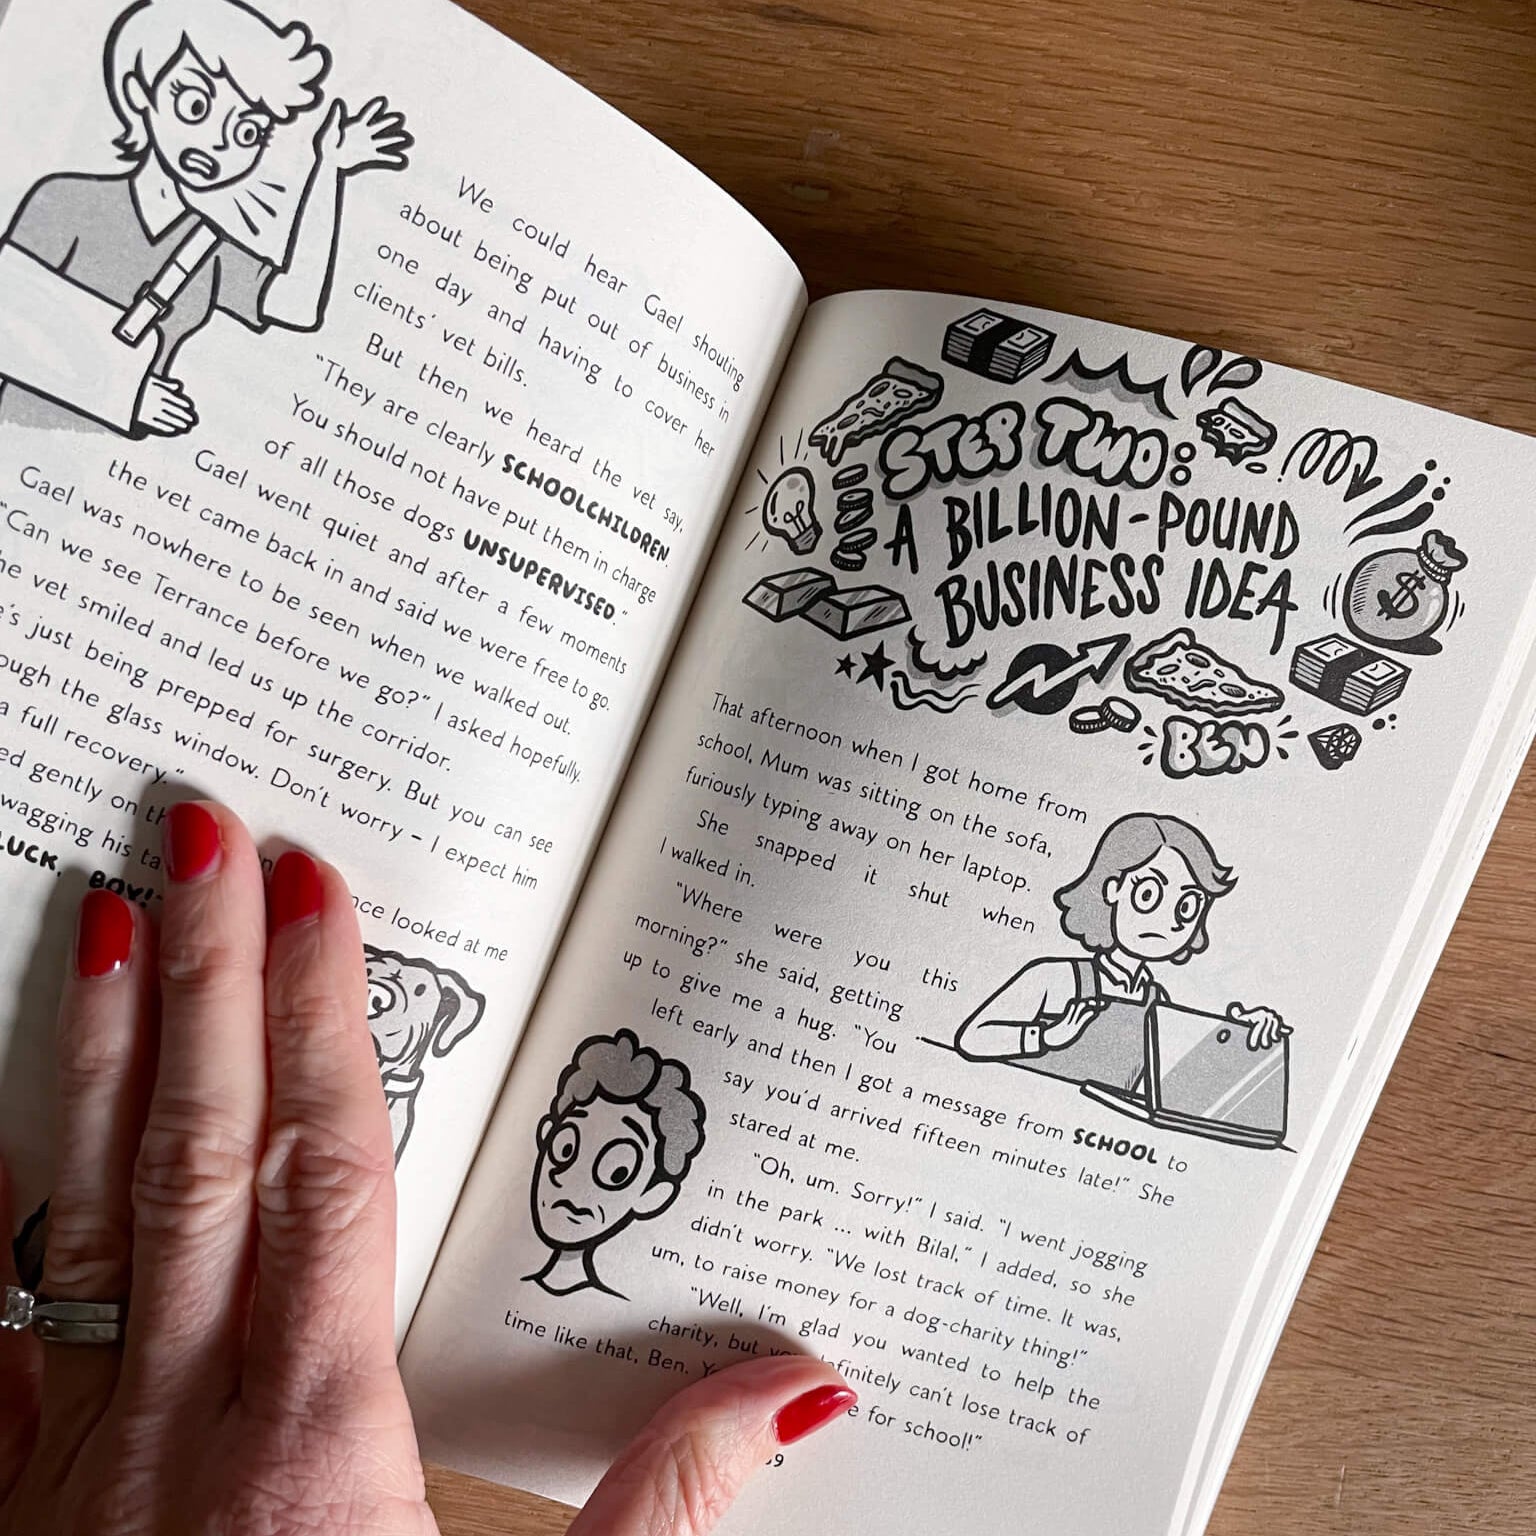 We could hear Gael shouting
about being put out of business in
one day and having to cover her
clients' vet bills.
But then we heard the vet say,
"They are clearly SCHOOLCHILDREN.
You should not have put them in charge
of all those dogs UNSUPERVISED."
Gael went quiet and after a few moments
the vet came back in and said we were free to go.
Gael was nowhere to be seen when we walked out.
"Can we see Terrance before we go?" I asked hopefully.
vet smiled and led us up the corridor.
just being prepped for surgery. But you can see
the glass window. Don't worry – I expect him
a full recovery."
looked at me
gently on
wagging his
LUCK, BOY!"
STEP TWO:
A BILLION-POUND
BUSINESS IDEA
BEN
That afternoon when I got home from
school, Mum was sitting on the sofa,
furiously typing away on her laptop.
She snapped it shut when
I walked in.
"Where were you this
morning?" she said, getting
up to give me a hug. "You
left early and then I got a message from SCHOOL to
say you'd arrived fifteen minutes late!" She
stared at me.
"Oh, um. Sorry!" I said. "I went jogging
in the park ... with Bilal," I added, so she
didn't worry. "We lost track of time. It was,
um, to raise money for a dog-charity thing!"
"Well, I'm glad you wanted to help the
charity, but can't lose track of
time like that, Ben. for school!"